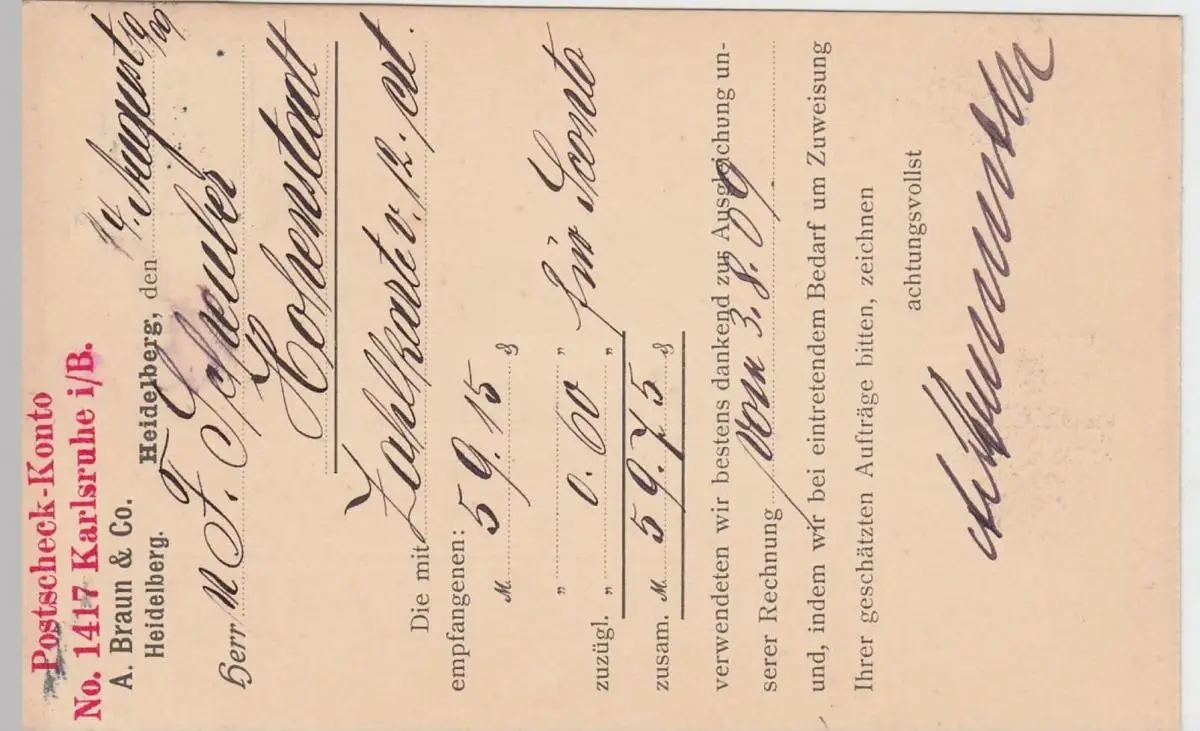 Postscheck-Konto
No. 1417 Karlsruhe i/B.
A. Braun & Co.
Heidelberg.
Heidelberg, den 14. August
Herrn F. Scheuber
Hohenstadt
Die mit Zahlkarte v. 12. crt.
empfangenen:
M. 59.15 ₰
„ „
zuzügl. „ 0.60 „ für Sconto
zusam. M. 59.75 ₰
verwendeten wir bestens dankend zur Ausgleichung un-
serer Rechnung vom 3.8.09
und, indem wir bei eintretendem Bedarf um Zuweisung
Ihrer geschätzten Aufträge bitten, zeichnen
achtungsvollst